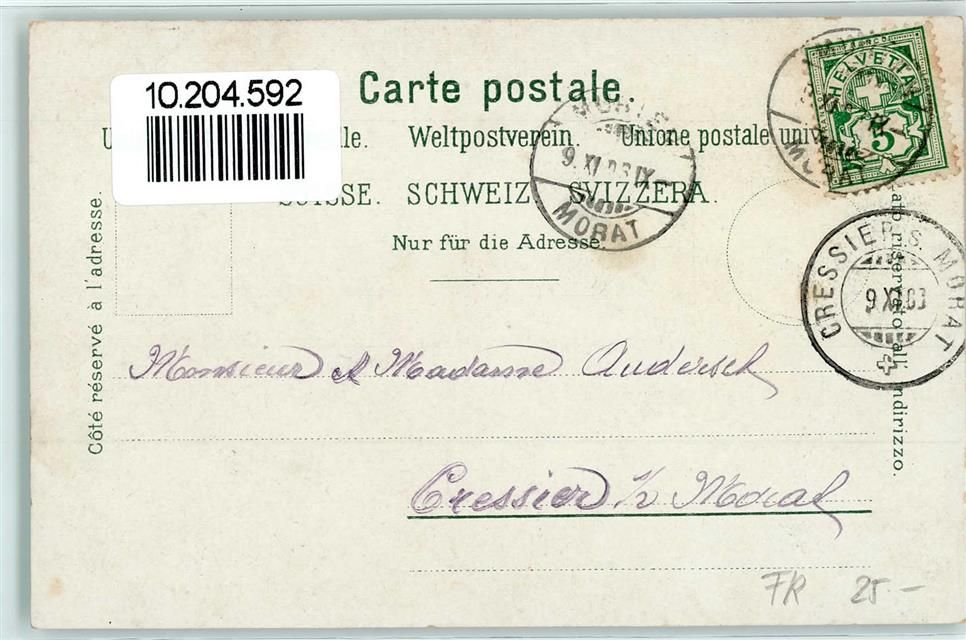 10.204.592
Carte postale.
Weltpostverein. Unione postale
SUISSE. SCHWEIZ. SVIZZERA.
Nur für die Adresse.
Côté réservé à l'adresse.
HELVETIA
5
MORAT
9. XI. 03. IX
CRESSIER S. MORAT
9 XI.03
Monsieur & Madame Audersch
Cressier s/ Morat
FR 25.—